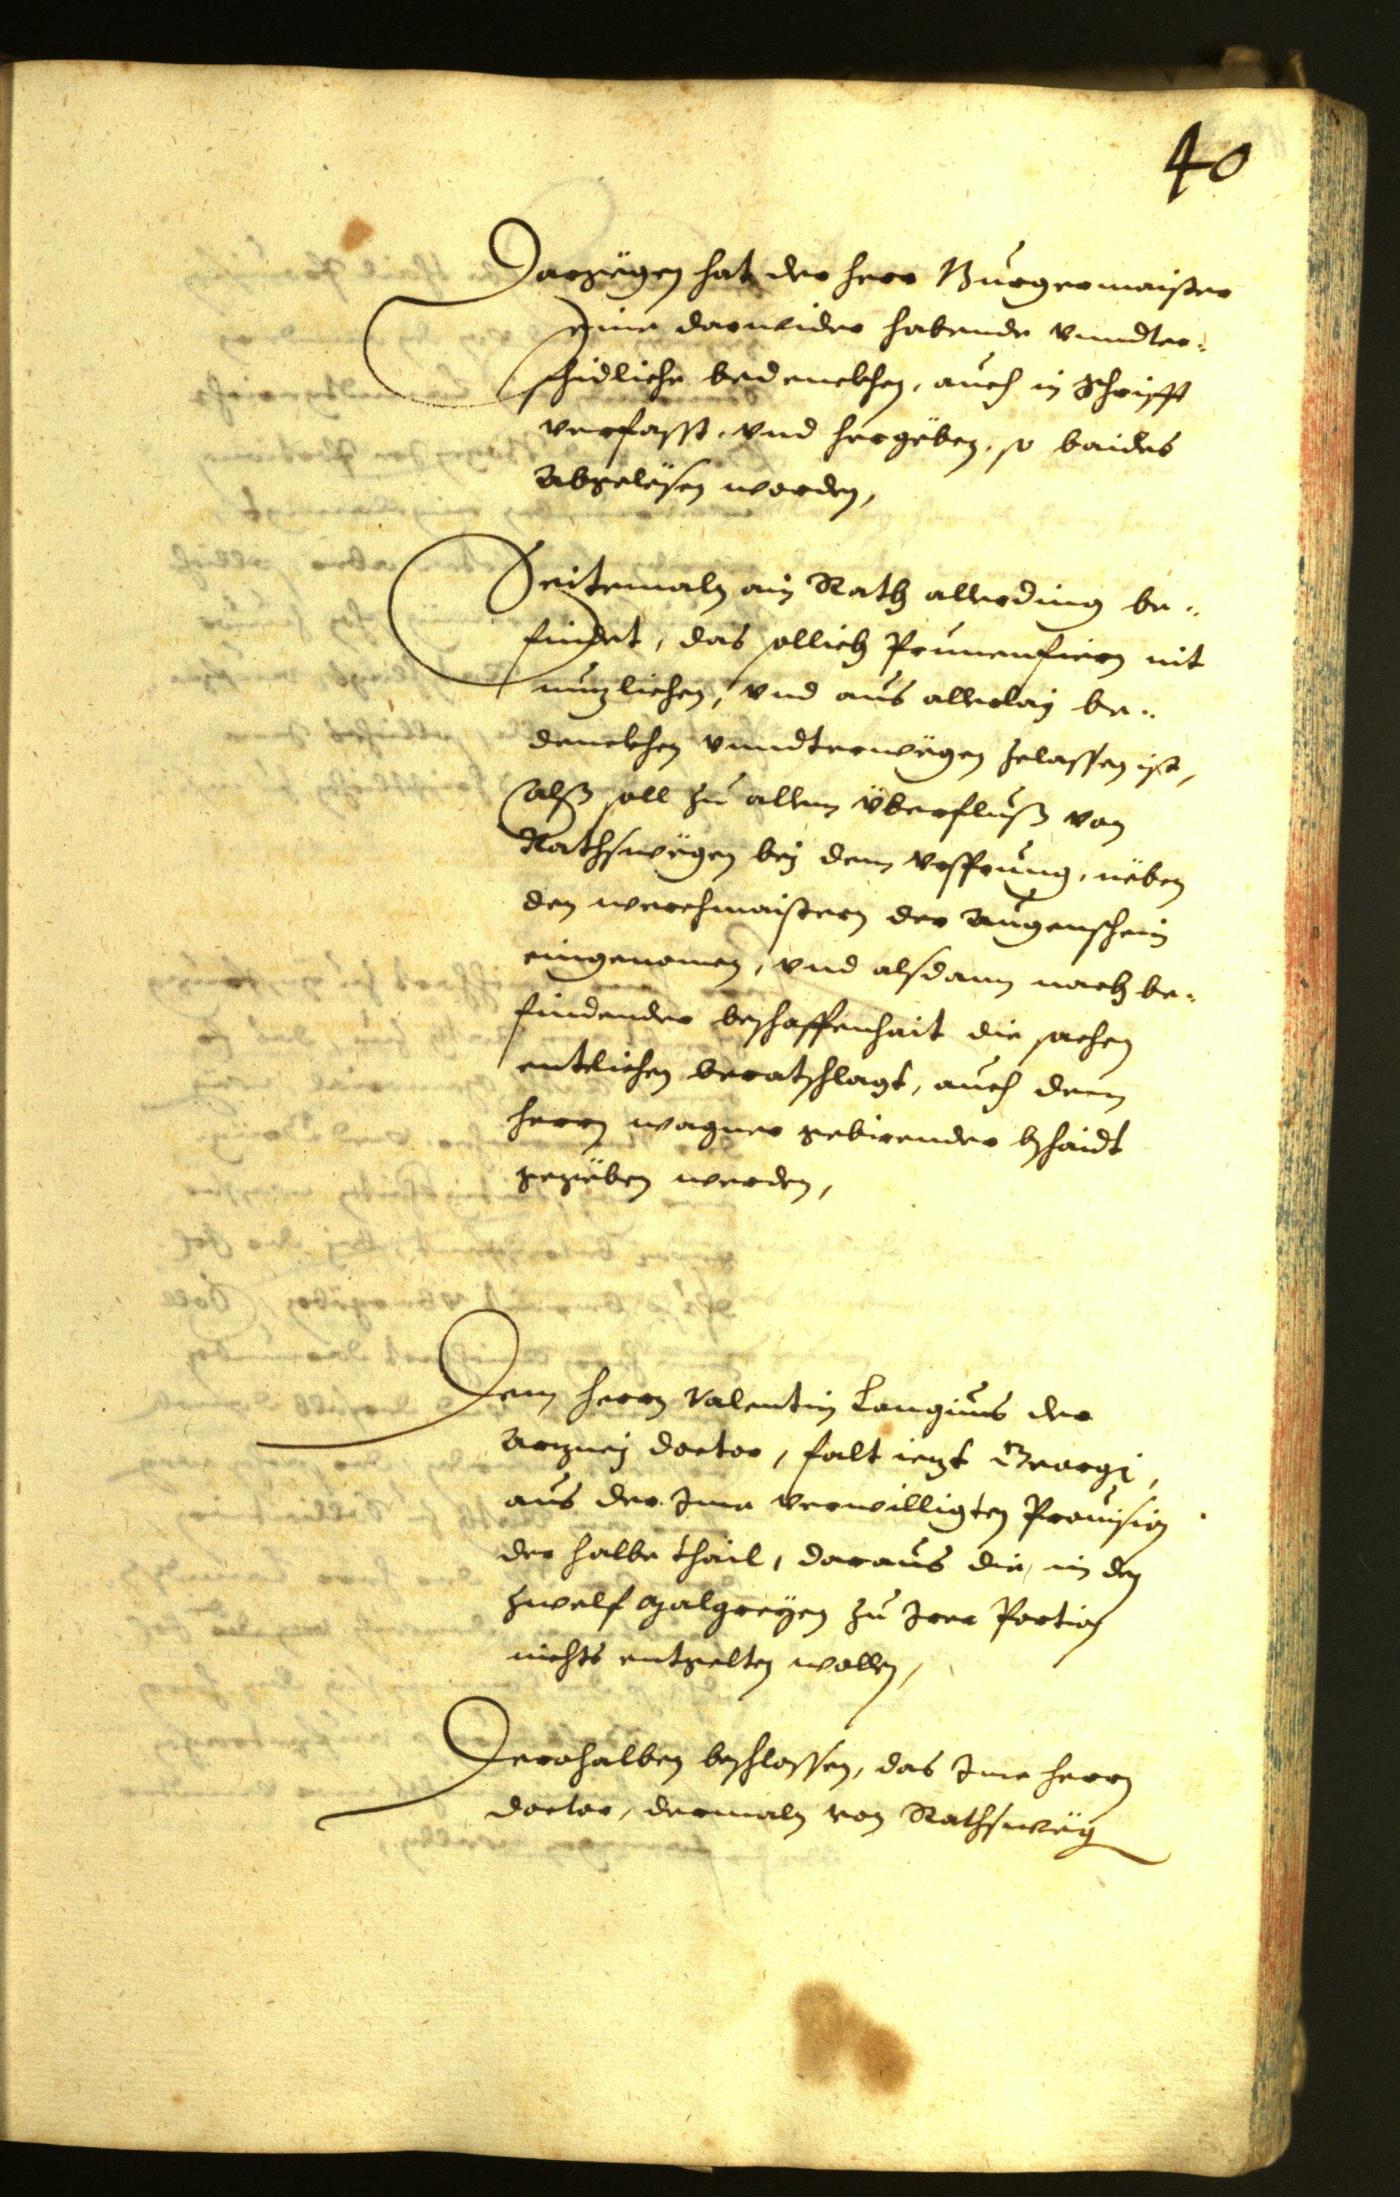 40
Dargëgen hat der herr Burgermaister
seine darwider habende vnndter-
schidliche bedenckhen, auch in schrifft
verfasst, vnd hergëben, so baides
abgelësen worden,
Seitemaln ain Rath allerding be-
findet, das sollich Prunenfiern nit
nutzlichen, vnd aus allerlaÿ be-
denckhen vnndterwëgen zelassen ist,
alß soll zu allem überfluß von
Rathswëgen beÿ dem vrsprung, nëben
den werchmaistern der augenschein
eingenomen, vnd alsdann nach be-
findender beschaffenhait die sachen
entlichen beratschlagt, auch dem
herrn wagner gebirender bschaidt
gegëben werden,
Dem herrn Valentin Langius der
arzneÿ doctor, falt iezt Georgi,
aus der Ime verwilligten Prouision
der halbe thail, daraus die in den
zwelf Malgreÿen zu Irer Portion
nichts entgelten wollen,
Derohalben beschlossen, das Ime herrn
doctor, dermaln von Rathswëg